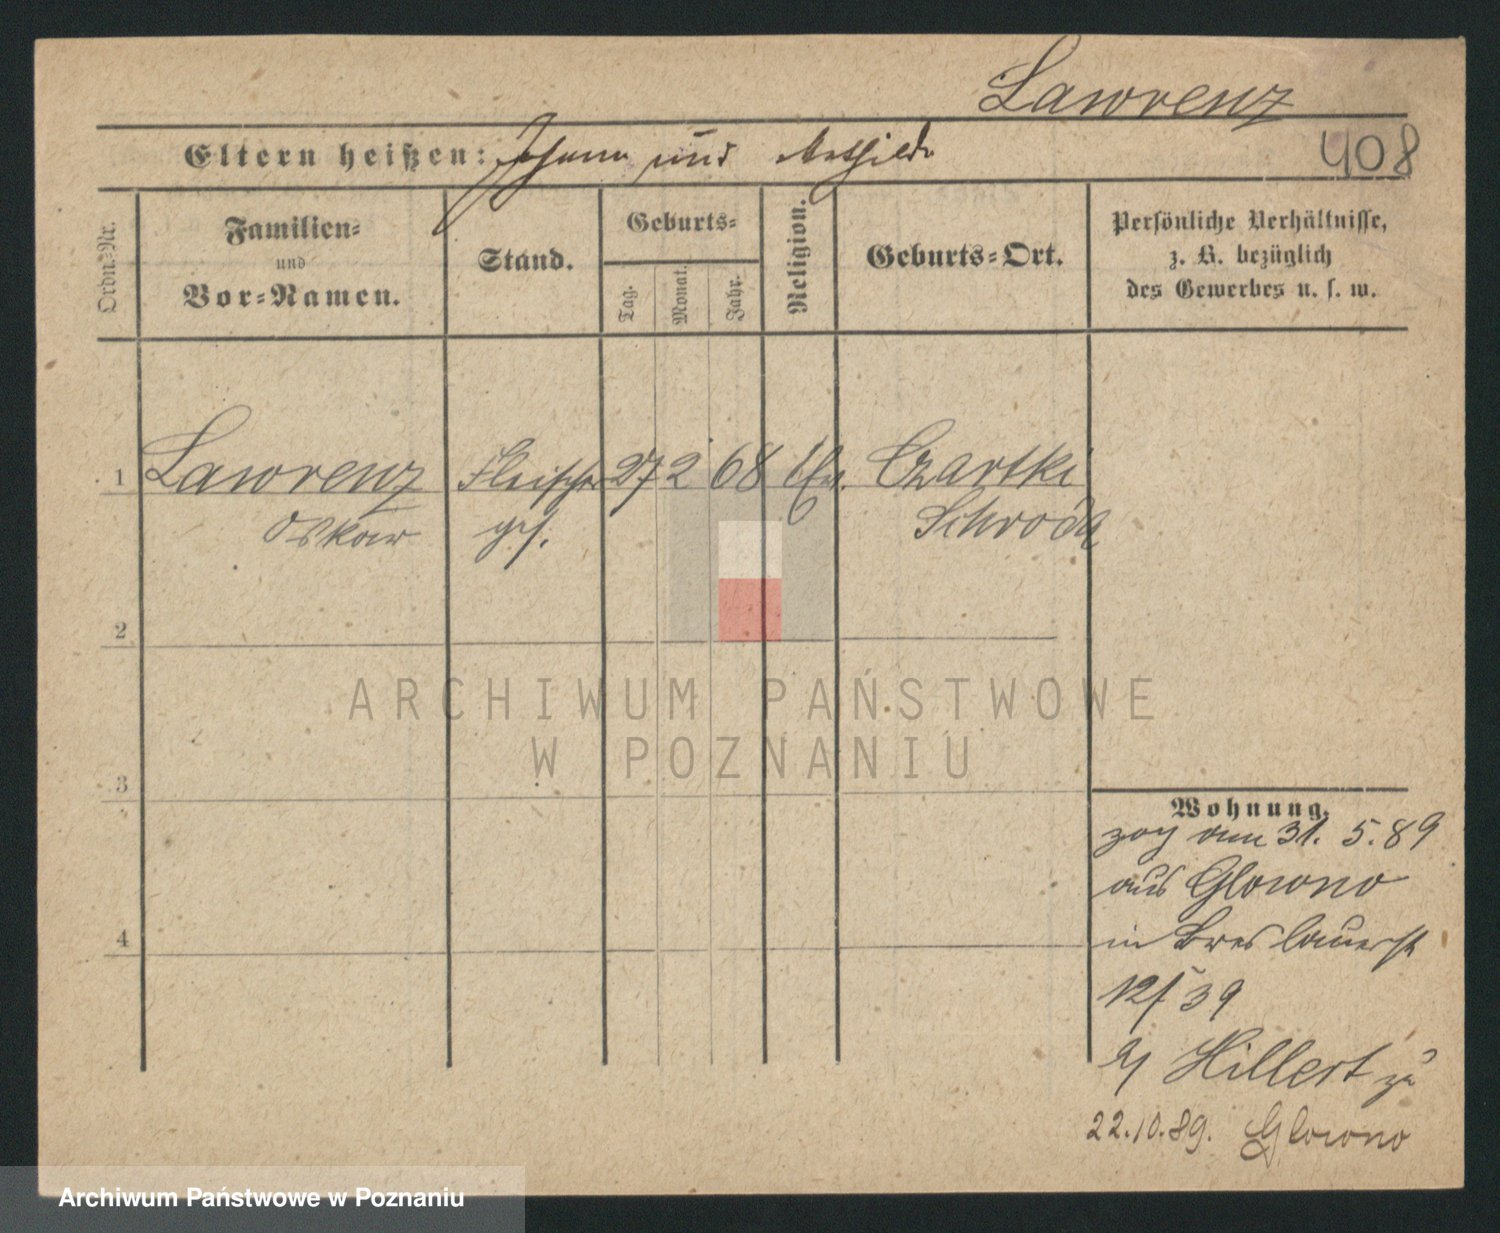 Lawrenz
408
Eltern heißen: Johann und Mathilde
Ordn.-Nr.
Familien-
und
Vor-Namen.
Stand.
Geburts-
Tag.
Monat.
Jahr.
Religion.
Geburts-Ort.
Persönliche Verhältnisse,
z. B. bezüglich
des Gewerbes u. s. w.
1 Lawrenz Fleischer 27 2 68 Ev. Czartki
Oskar ges. Schroda
2
ARCHIWUM PAŃSTWOWE
W POZNANIU
3
4
Wohnung.
zog am 31. 5. 89
aus Glowno
in Breslauerst
12/39
b/ Hillert zu
22.10.89. Glowno
Archiwum Państwowe w Poznaniu